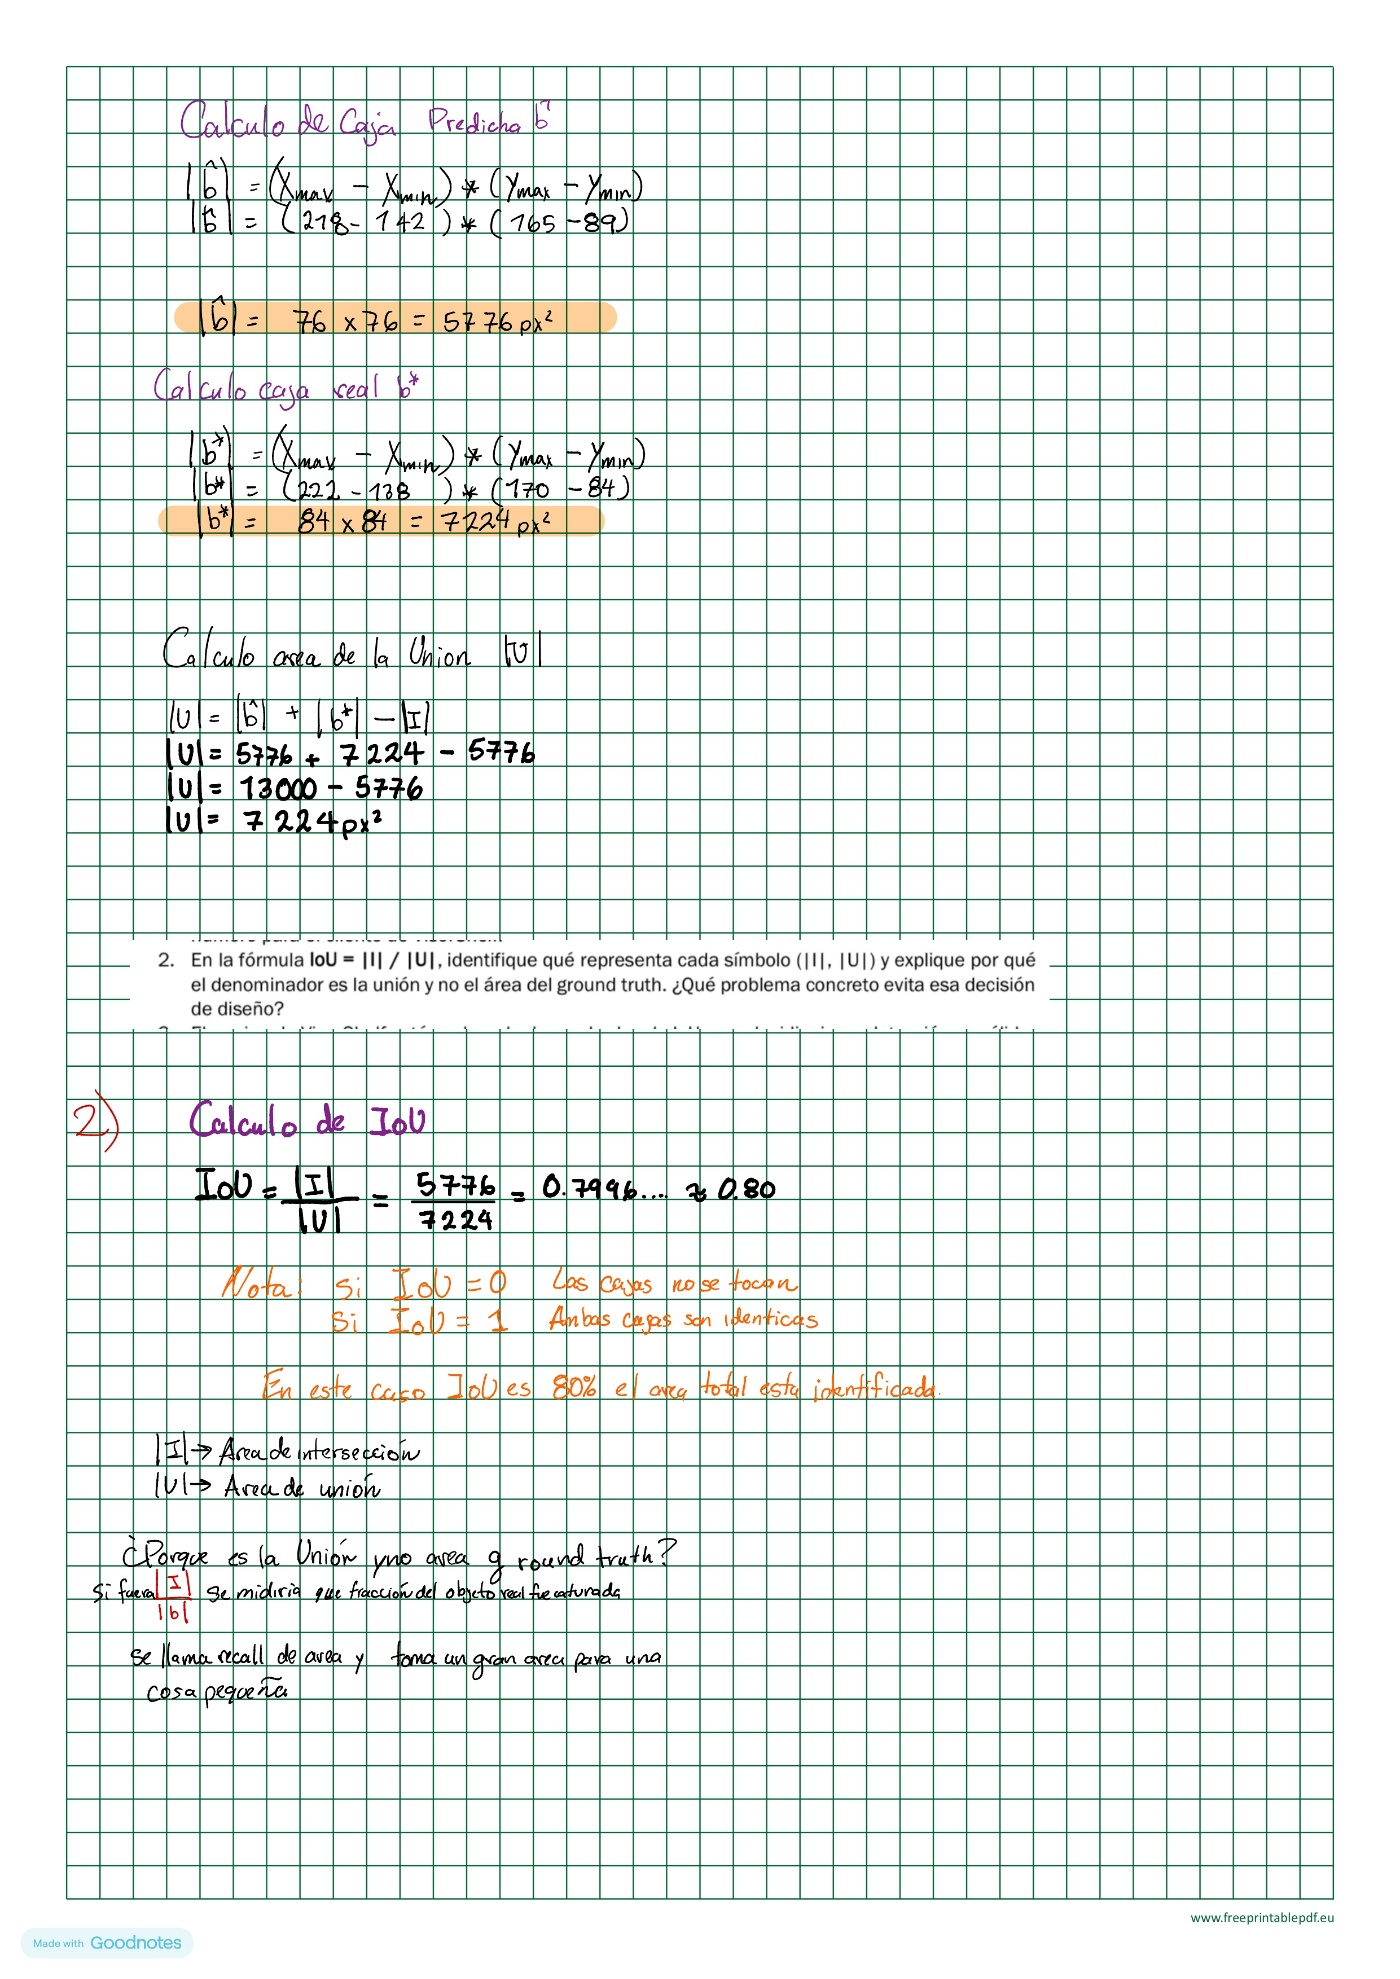 Calculo de Caja Predicha b̂
|b̂| = (Xmax - Xmin) * (Ymax - Ymin)
|b̂| = (218 - 142) * (165 - 89)
|b̂| = 76 x 76 = 5776 px²
Calculo caja real b*
|b*| = (Xmax - Xmin) * (Ymax - Ymin)
|b*| = (222 - 138) * (170 - 84)
|b*| = 84 x 84 = 7224 px²
Calculo area de la Union |U|
|U| = |b̂| + |b*| - |I|
|U| = 5776 + 7224 - 5776
|U| = 13000 - 5776
|U| = 7224 px²
2. En la fórmula IoU = |I| / |U|, identifique qué representa cada símbolo (|I|, |U|) y explique por qué
el denominador es la unión y no el área del ground truth. ¿Qué problema concreto evita esa decisión
de diseño?
2) Calculo de IoU
IoU = |I| / |U| = 5776 / 7224 = 0.7996.... ≈ 0.80
Nota: si IoU = 0 Las cajas no se tocan
Si IoU = 1 Ambas cajas son identicas
En este caso IoU es 80% el area total esta identificada.
|I| → Area de intersección
|U| → Area de unión
¿Porque es la Unión y no area ground truth?
Si fuera |I| / |b| se midiria que fracción del objeto real fue caturada
se llama recall de area y toma un gran area para una
cosa pequeña
www.freeprintablepdf.eu
Made with Goodnotes